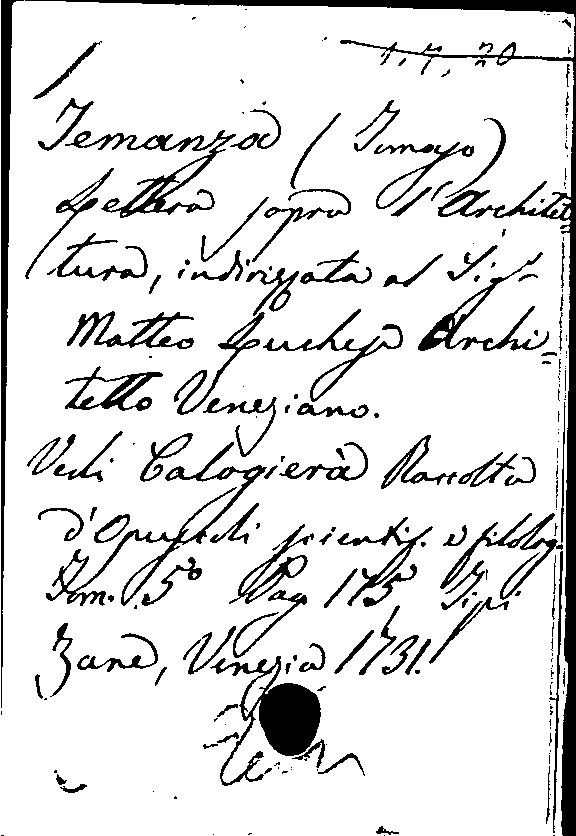 1, 7, 20
Temanza (Tomaso)
Lettera sopra l'Architet=
tura, indirizzata al Sigr
Matteo Lucchesi Archi=
tetto Veneziano.
Vedi Calogierà Raccolta
d'Opuscoli scientif. e filolog.
Tom. 5º Pag. 175 Tipi
Zane, Venezia 1731.